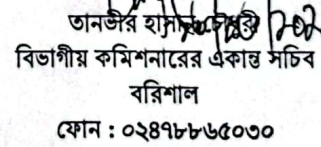 তানভীর
বিভাগীয় কমিশনারের একান্ত সচিব
বরিশাল
ফোন : ০২৪৭৮৮৬৫০৩০